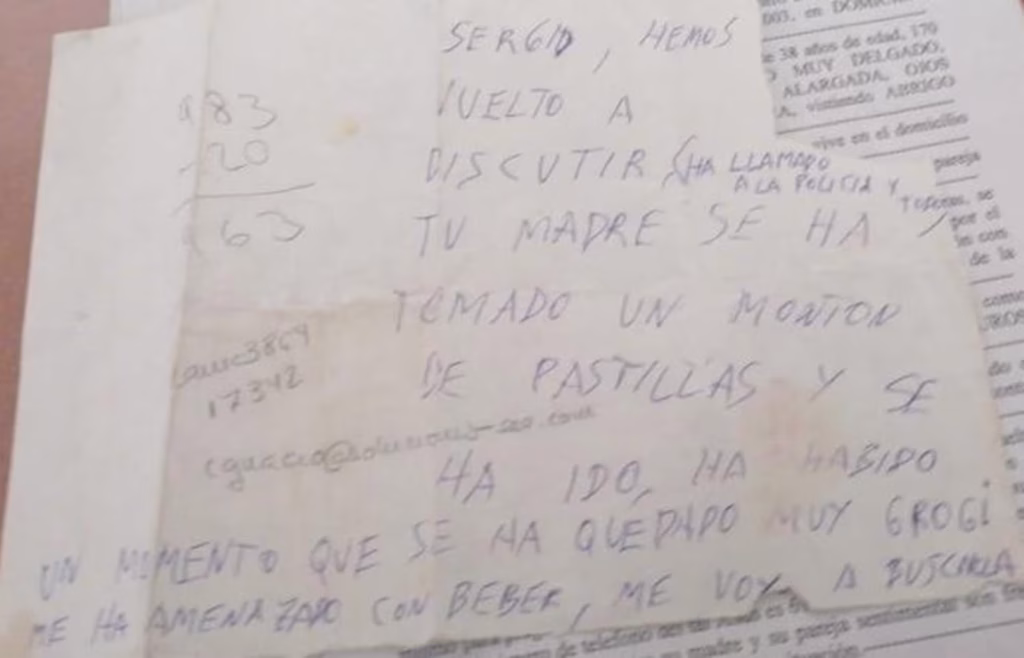 SERGIO, HEMOS
VUELTO A
DISCUTIR (HA LLAMADO
A LA POLICIA Y
TU MADRE SE HA
TOMADO UN MONTON
DE PASTILLAS Y SE
HA IDO, HA HABIDO
UN MOMENTO QUE SE HA QUEDADO MUY GROGI
ME HA AMENAZADO CON BEBER, ME VOY A BUSCARLA
83
20
63
17342
003, en
38 años de edad, 170
MUY DELGADO,
ALARGADA, OJOS
A, vistiendo ABRIGO
vive en el domicilio
pareja
por el
con
de la
como
de teléfono
madre y su pareja sentimental